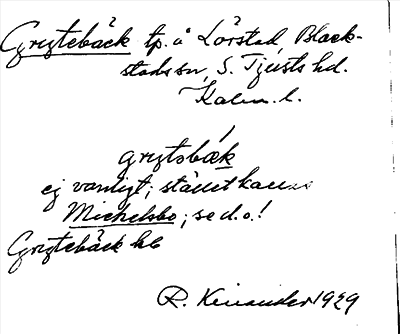 Grytebäck tp. å Lörstad, Black-
stads sn, S. Tjusts hd.
Kalm. l.
grytsbæk
ej vanligt; stället kallas
Michelsbo; se d.o.!
Grytebäck hb
R. Kinander 1929